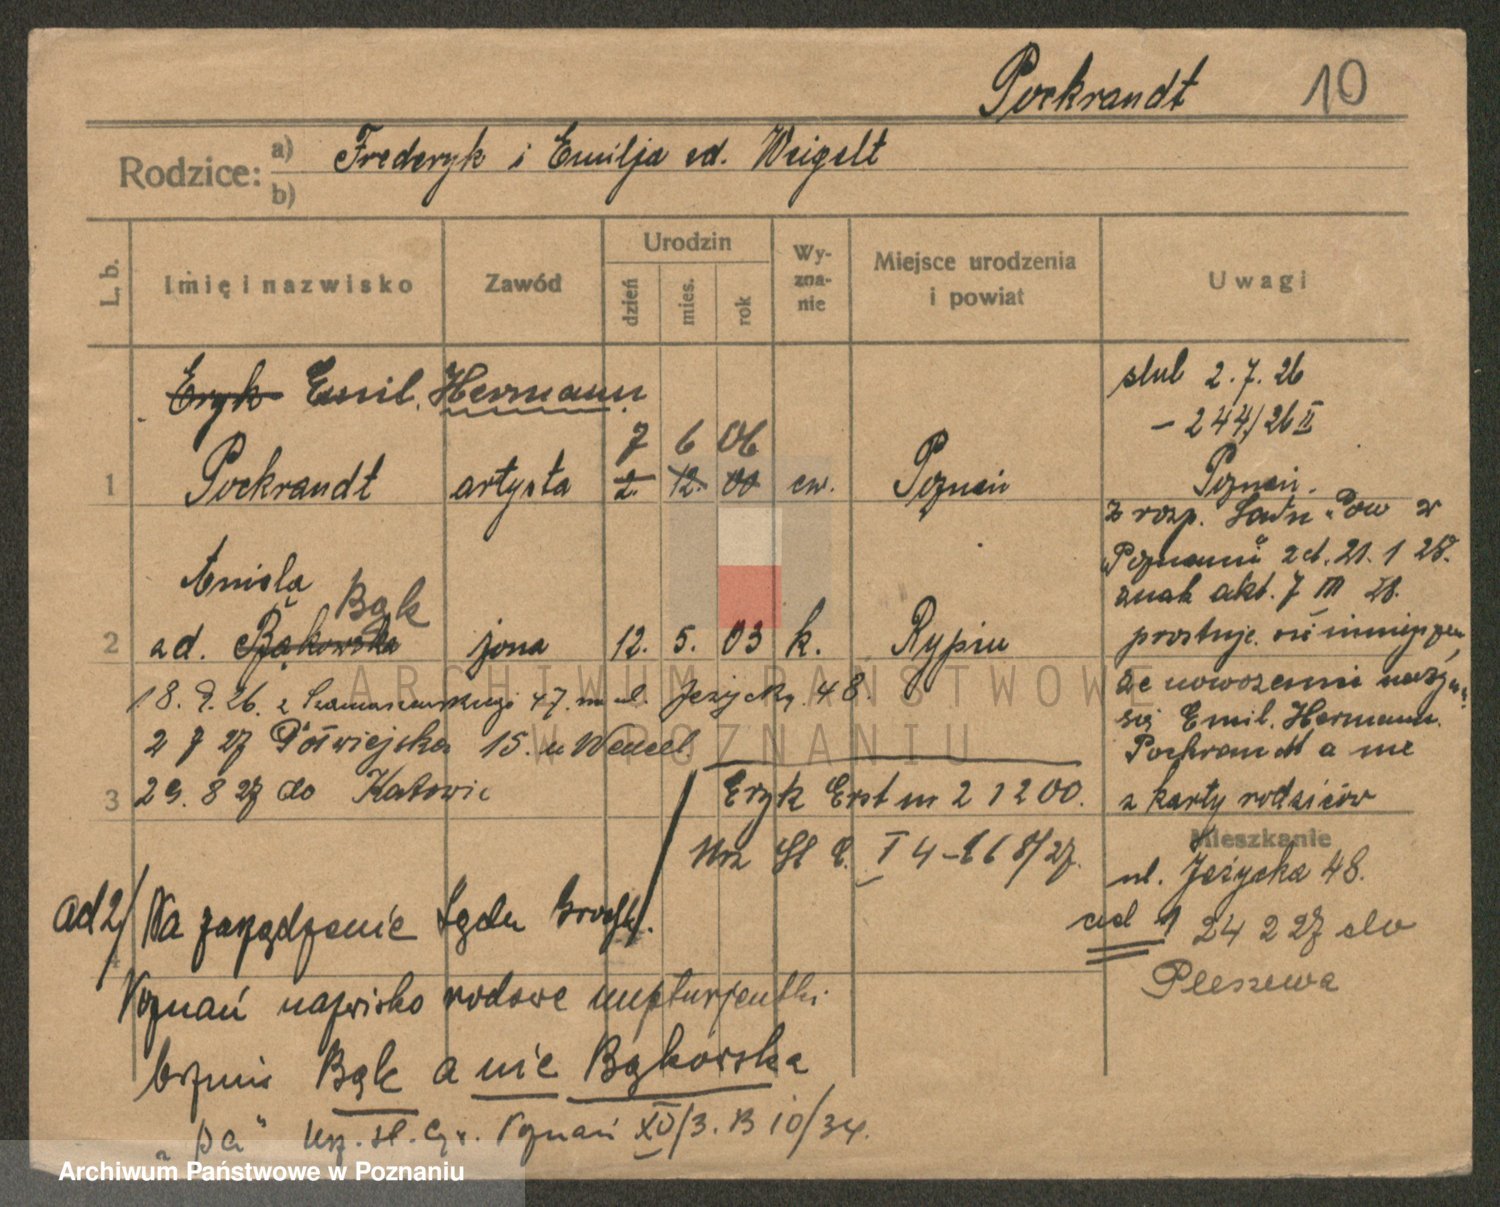 Pockrandt 10
Rodzice: a) Frederyk i Emilja od. Weigelt
b)
L. b. Imię i nazwisko Zawód Urodzin Wyznanie Miejsce urodzenia i powiat Uwagi
dzień mies. rok
Eryk Emil. Hermann
7 6 06
1 Pockrandt artysta 2. 12. 00 ew. Poznań
ślub 2. 7. 26
– 244/26 II
Poznań.
z rozp. Sądu "Pow w
Poznaniu" z d. 21. 1 28.
znak akt. 7 III 28.
prostuje się
że nowożeniec nazywa
się Emil. Hermann.
Pockrandt a nie
z karty rodziców
Aniela
Bąk
2 od. Bąkowska żona 12. 5. 03 k. Rypin
18. 9. 26. z Szamarzewskiego 47. na ul. Jeżycką. 48.
2 7 27 Półwiejska 15. u Wencel
3 29. 8 27 do Katowic
Eryk Erst ur 2 12 00.
Urz St C. I 4 – 168/27.
Mieszkanie
ul. Jeżycka 48.
ad 1 24 2 27 do
Pleszewa
ad 2/ Na zarządzenie Sądu Grodzk.
4
Poznań nazwisko rodowe nupturjentki
brzmi Bąk a nie Bąkowska
"pa" Urz. st. Cyw. Poznań XV/3. B 10/34.
ARCHIWUM PAŃSTWOWE
W POZNANIU
Archiwum Państwowe w Poznaniu